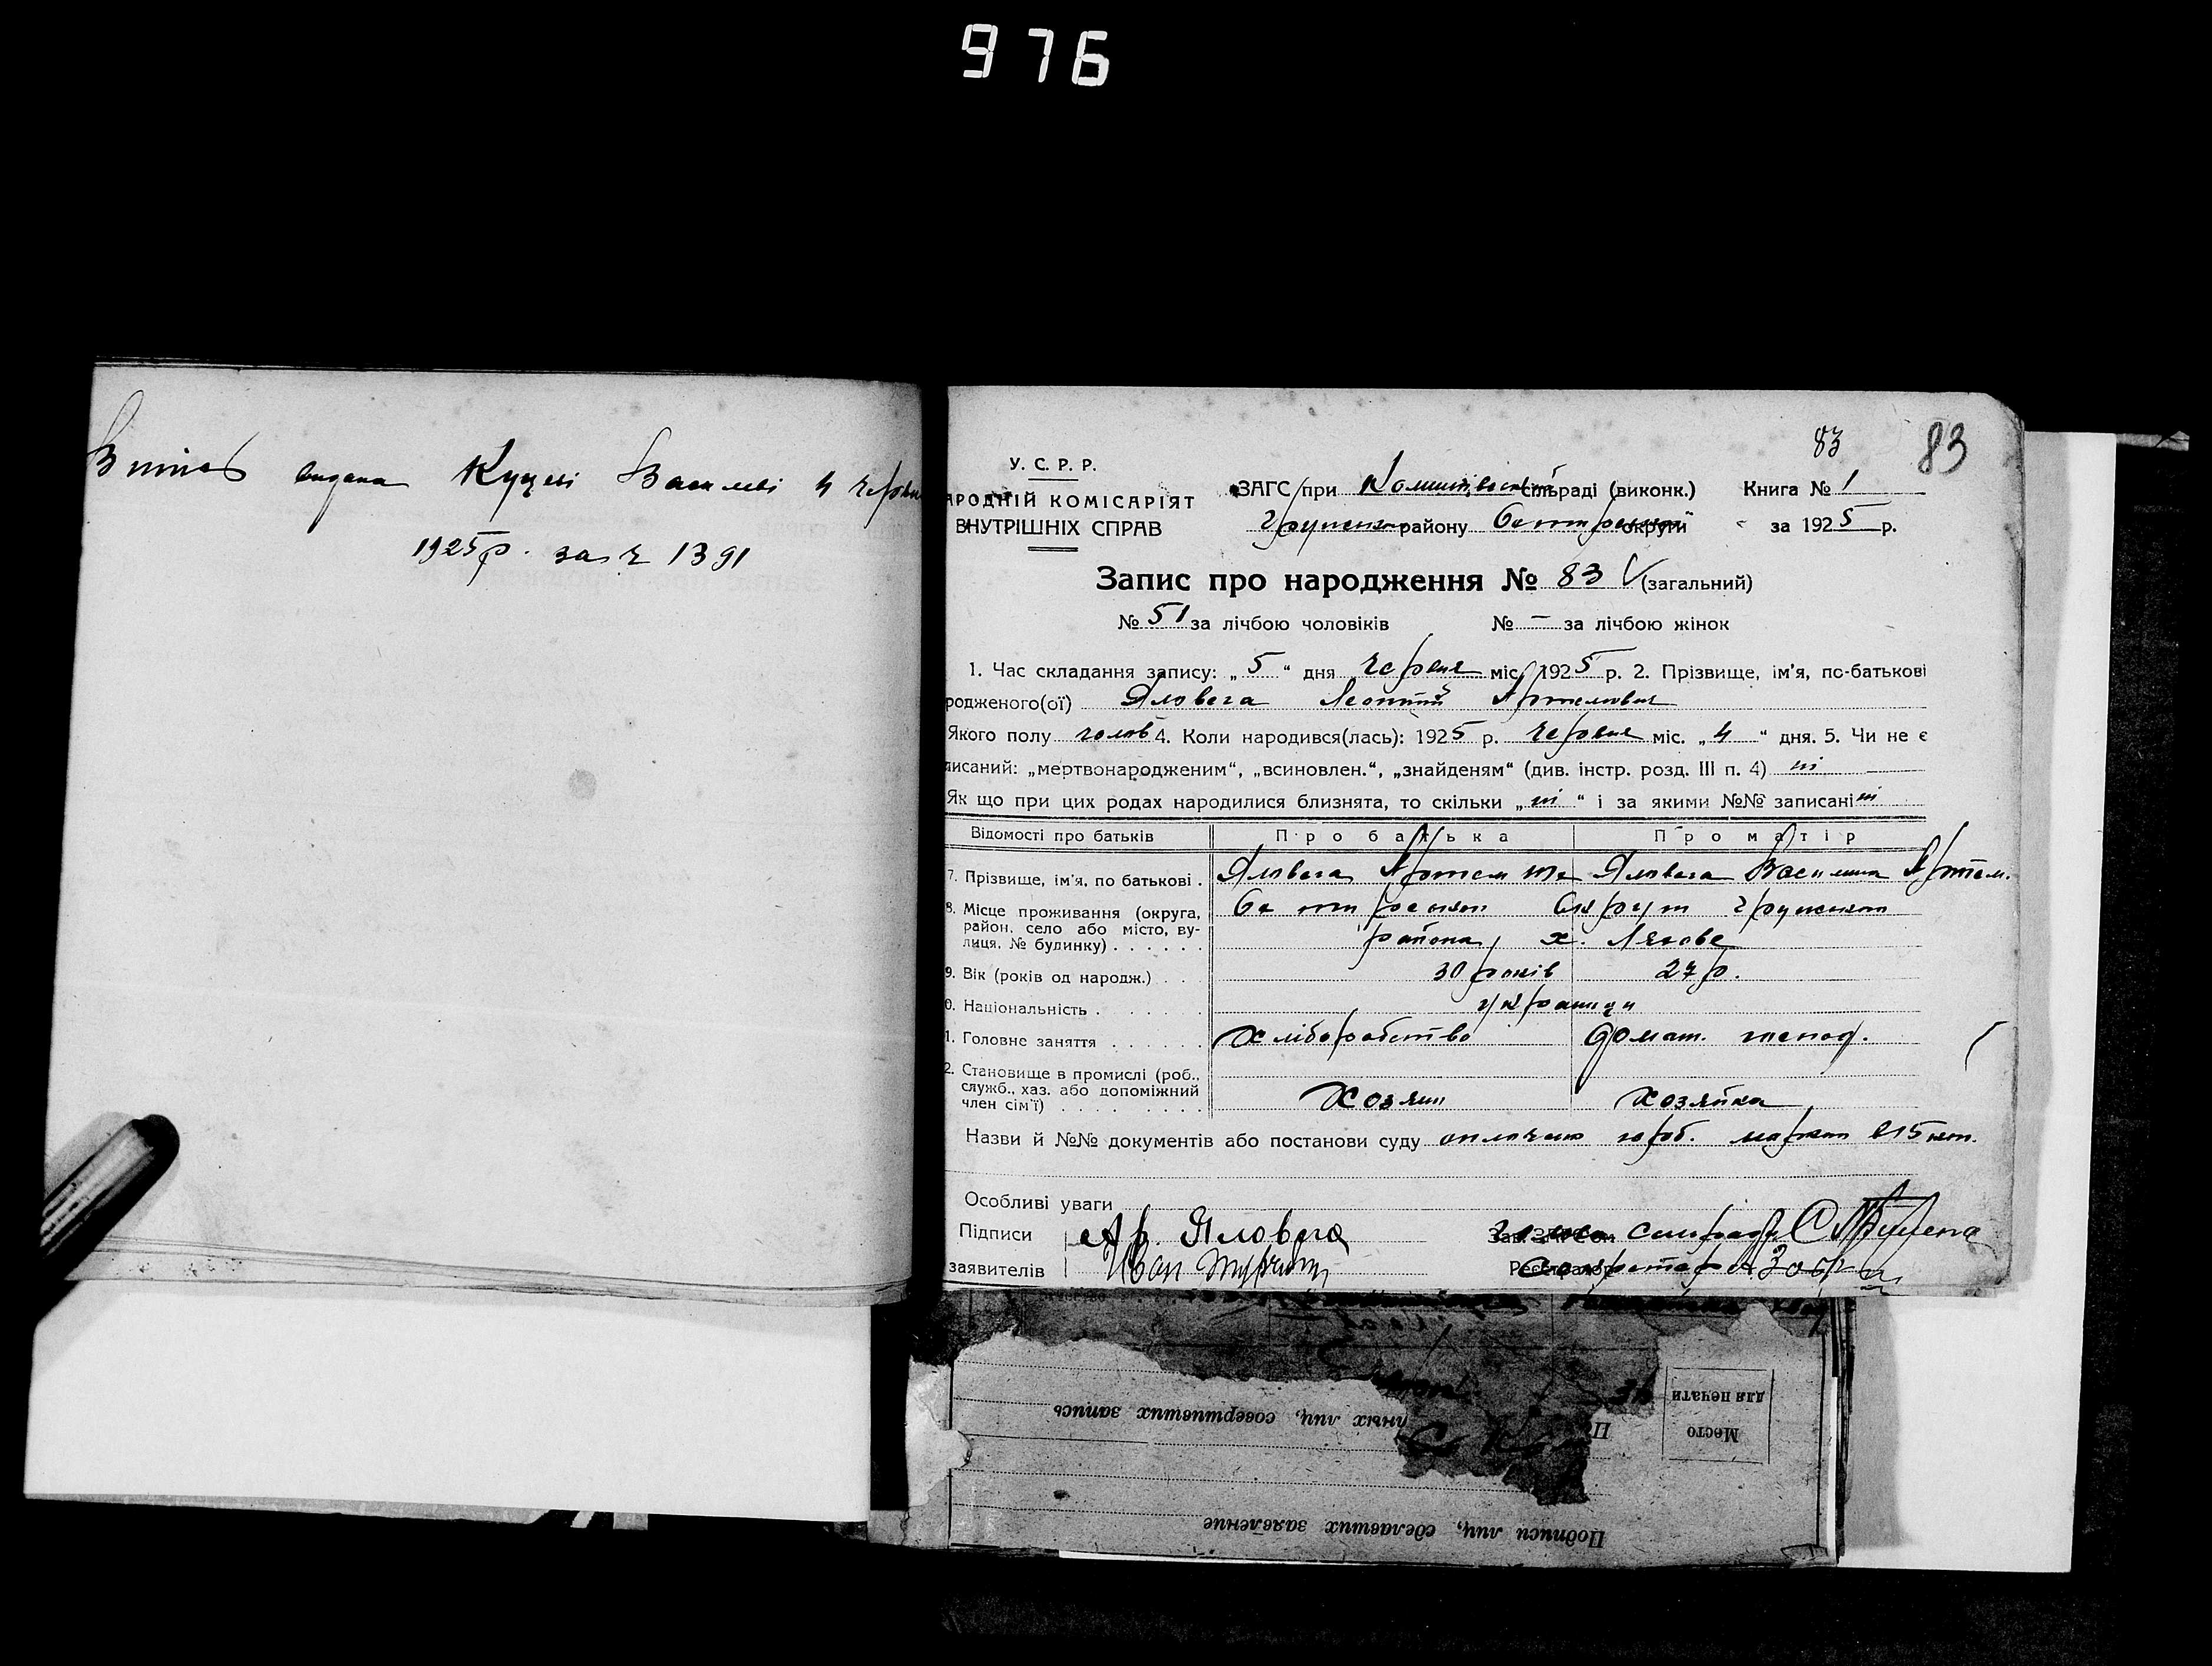 976
Витяг видана Куцеві Василеві 4 червн
1925 р. за ч 1391
83 83
У. С. Р. Р.
АРОДНІЙ КОМІСАРІЯТ
ВНУТРІШНІХ СПРАВ
ЗАГС при сільраді (виконк.) Книга № 1
Грунськ району округи за 1925 р.
Запис про народження № 83 (загальний)
№ 51 за лічбою чоловіків № — за лічбою жінок
1. Час складання запису: „ 5 “ дня червня міс. 1925 р. 2. Прізвище, ім’я, по-батькові
родженого(ої) Яловега Леонтій Артемович
Якого полу чолов 4. Коли народився(лась): 1925 р. червня міс. „ 4 “ дня. 5. Чи не є
писаний: „мертвонародженим“, „всиновлен.“, „знайденям“ (див. інстр. розд. III п. 4) ні
Як що при цих родах народилися близнята, то скільки „ ні “ і за якими №№ записані ні
Відомості про батьків Про батька Про матір
7. Прізвище, ім’я, по батькові . Яловега Артем Яловега Василина Артем.
8. Місце проживання (округа, район, село або місто, вулиця, № будинку) . . . . . . округ Грунськ
района, х.
9. Вік (років од народж.) . . . 30 років 27 р.
0. Національність . . . . . . українці
1. Головне заняття . . . . . . хліборобство домаш. господ.
2. Становище в промислі (роб., служб., хаз. або допоміжний член сім’ї) . . . . . . . . . Хозяин хозяйка
Назви й №№ документів або постанови суду оплачено герб. марком в 15 коп.
Особливі уваги
Підписи Ар. Яловега Зав. ЗАГС‘ом Голова сільради
заявителів Иван Реєстратор Секретар
Место
для печати
ных лиц, совершивших запись
Подписи лиц, сделавших заявление